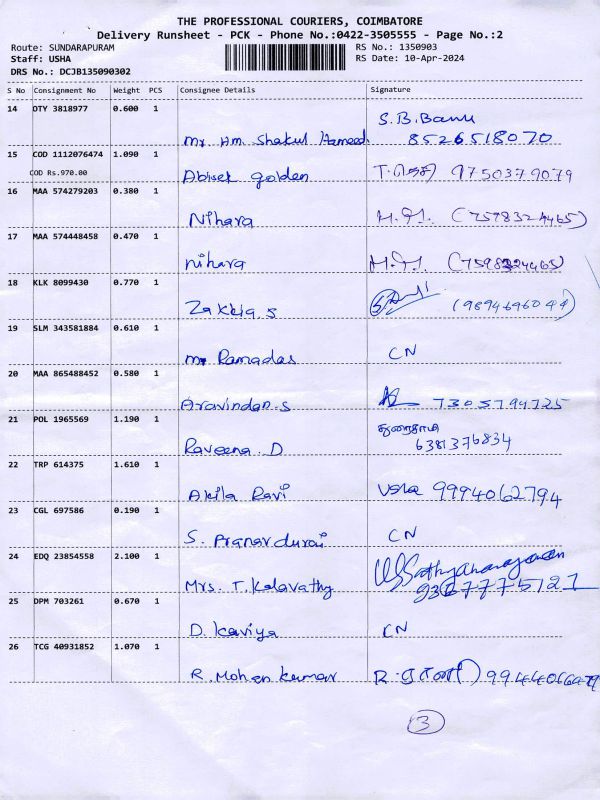 THE PROFESSIONAL COURIERS, COIMBATORE
Delivery Runsheet - PCK - Phone No.:0422-3505555 - Page No.:2
Route: SUNDARAPURAM
Staff: USHA
DRS No.: DCJB135090302
RS No.: 1350903
RS Date: 10-Apr-2024
S No Consignment No Weight PCS Consignee Details Signature
14 OTY 3818977 0.600 1 Mr. HM. Shakul Hameed S.B.Banu 8526518070
15 COD 1112076474 1.090 1 Abisek golden 9750379079
COD Rs.970.00
16 MAA 574279203 0.380 1 Nihara
17 MAA 574448458 0.470 1 nihara
18 KLK 8099430 0.770 1 Zakkia.S
19 SLM 343581884 0.610 1 Mr Ramadas CN
20 MAA 865488452 0.580 1 Aravindan.S 7305794725
21 POL 1965569 1.190 1 Raveena.D துரைசாமி 6381376834
22 TRP 614375 1.610 1 Akila Ravi Usha 9994062794
23 CGL 697586 0.190 1 S. Pranav durai CN
24 EDQ 23854558 2.100 1 Mrs. T. Kalavathy
25 DPM 703261 0.670 1 D. Kaviya CN
26 TCG 40931852 1.070 1 R. Mohan kumar
3